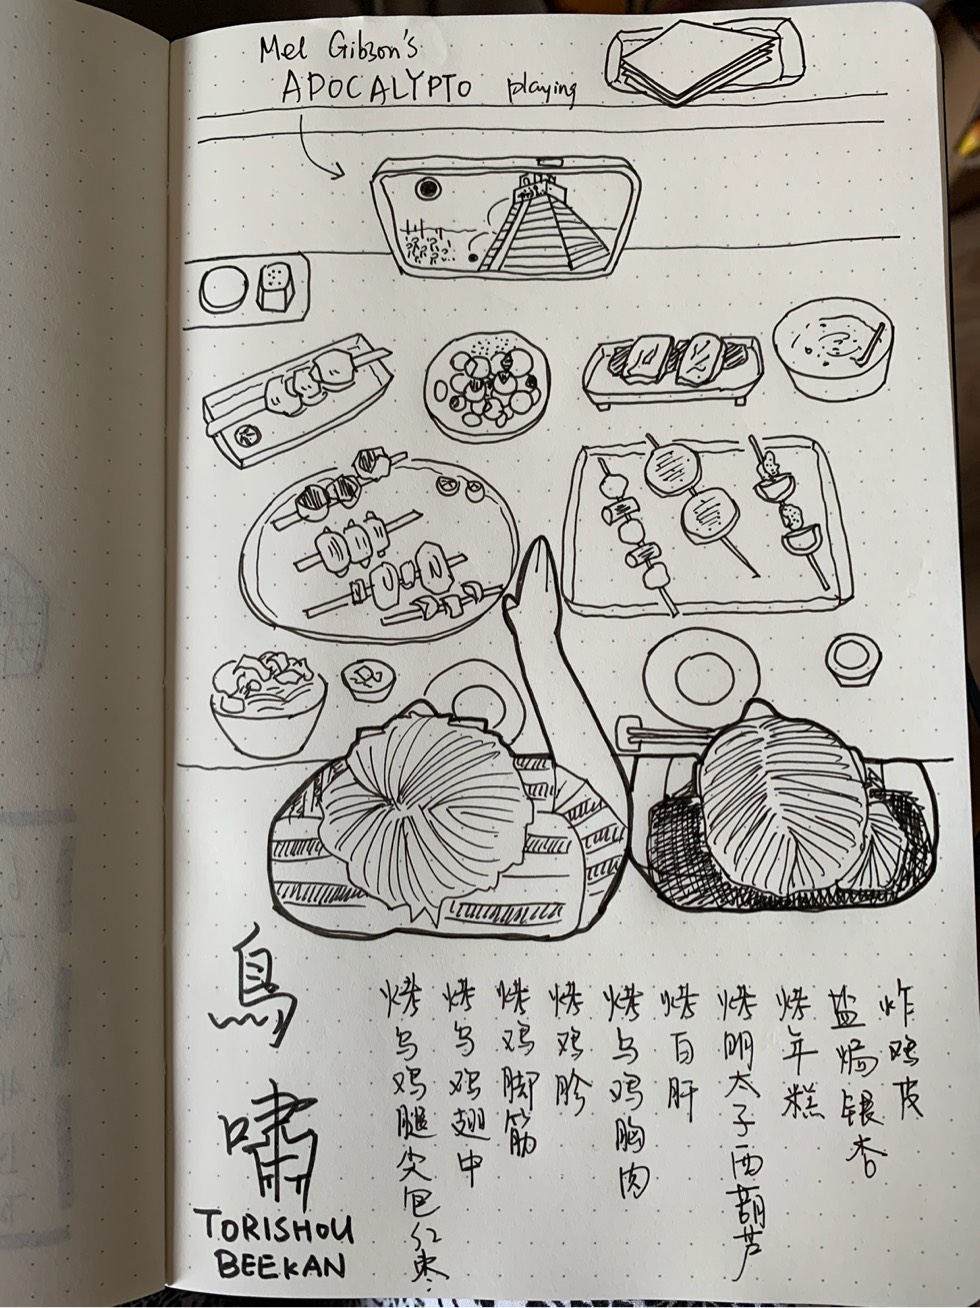 Mel Gibson's
APOCALYPTO playing
鳥嘯
TORISHOU
BEEKAN
烤乌鸡腿尖包红枣
烤乌鸡翅中
烤鸡脚筋
烤鸡胗
烤乌鸡胸肉
烤百肝
烤明太子西葫芦
烤年糕
盐焗银杏
炸鸡皮